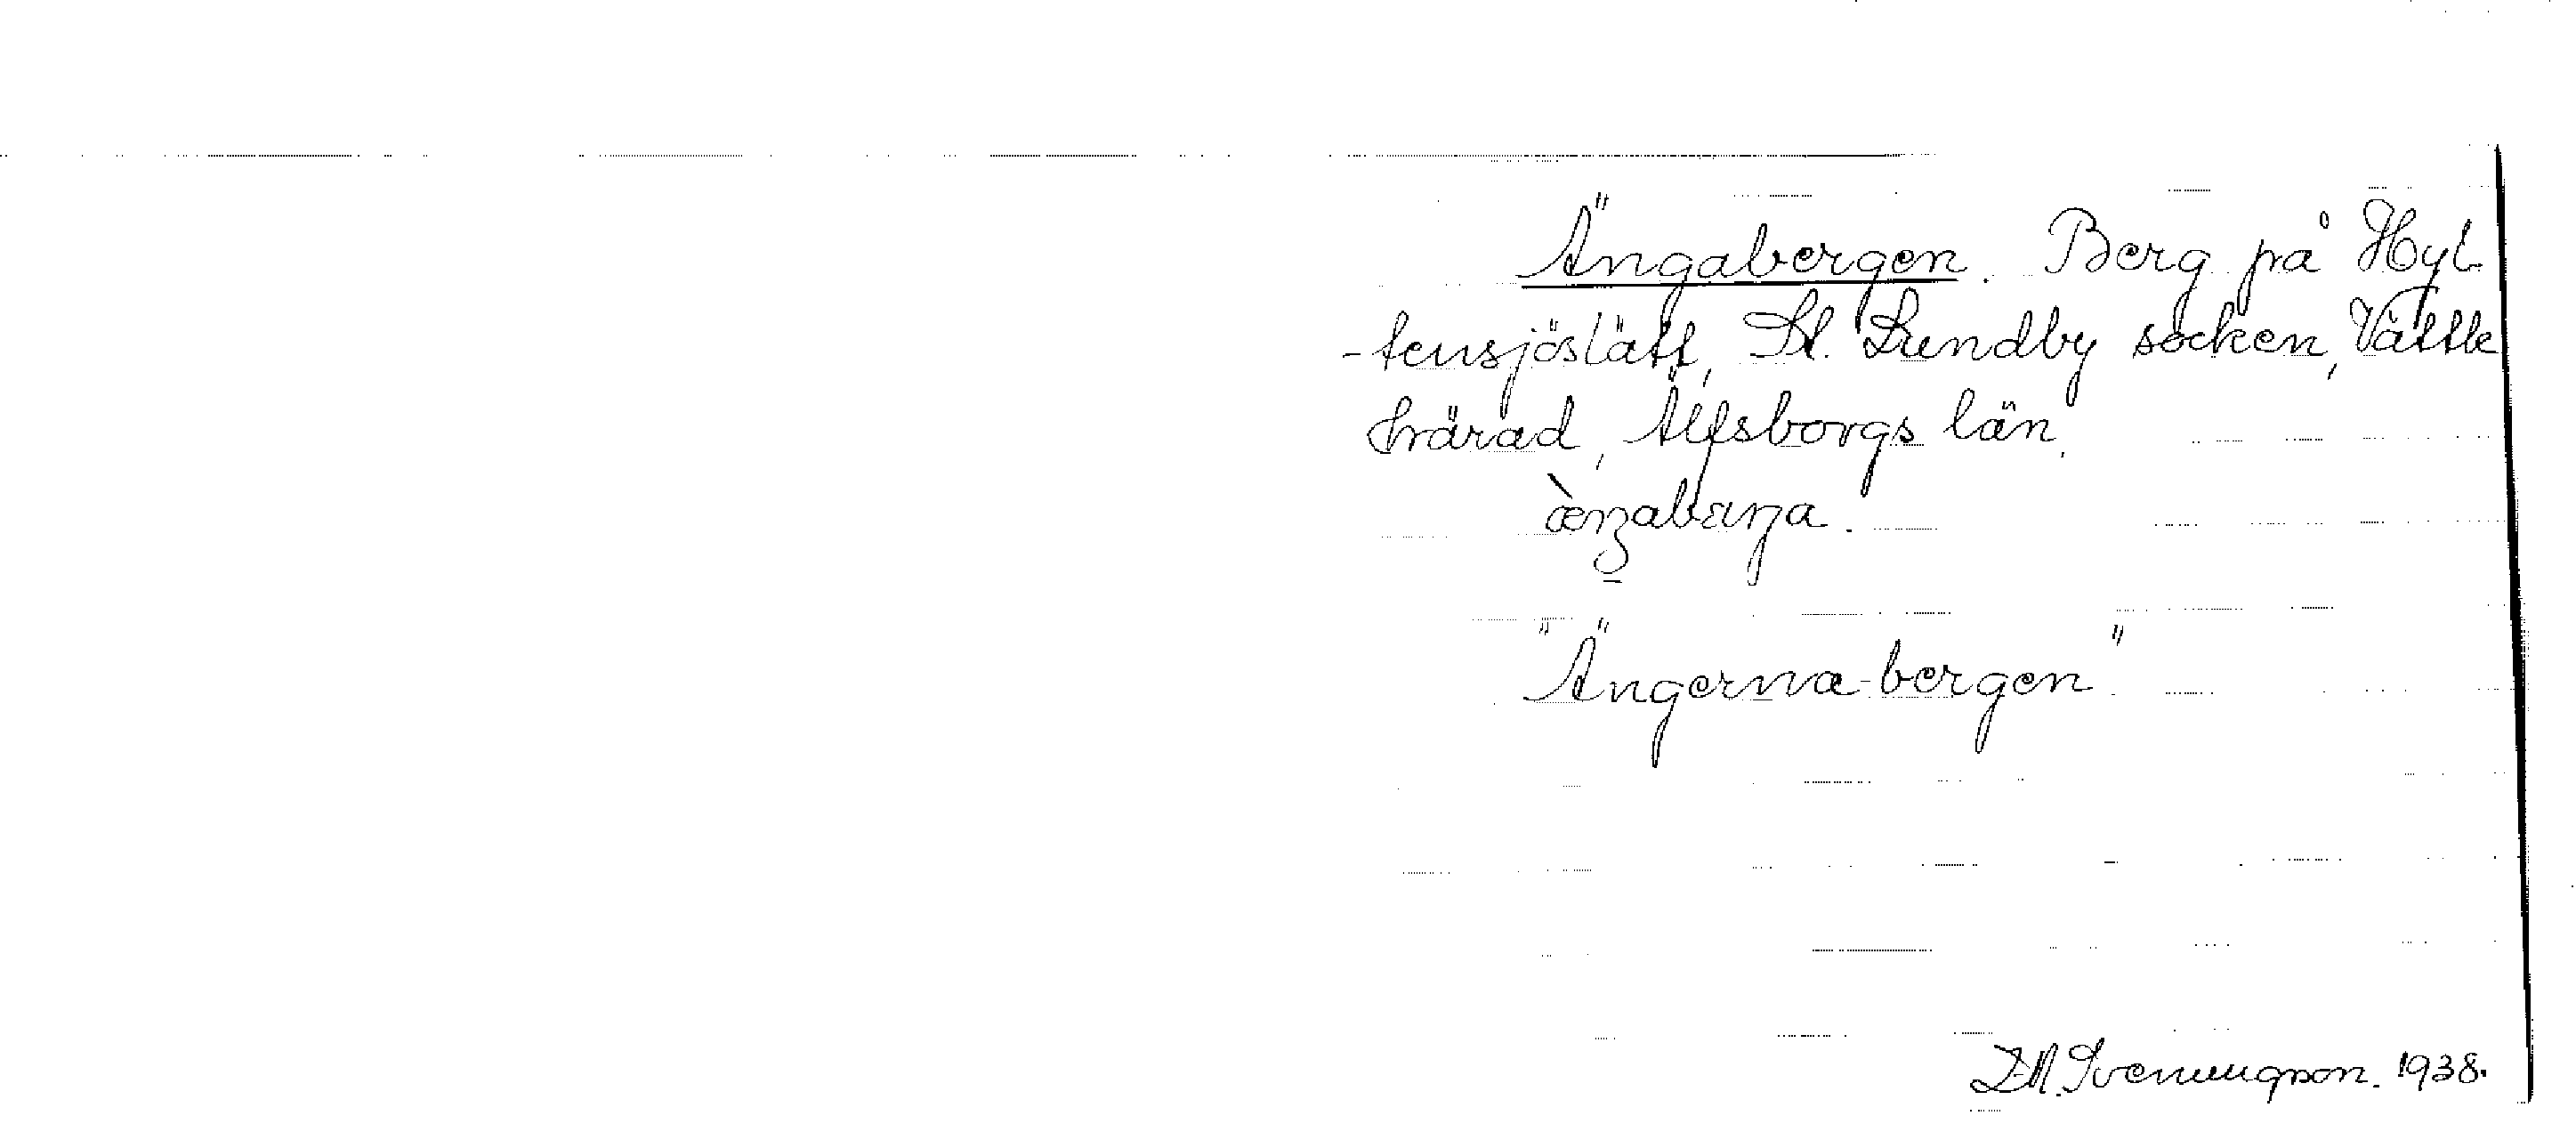 Ängabergen. Berg på Hyl-
-tensjöslätt, St. Lundby socken, Vättle
härad, Älfsborgs län.
"Ängerna-bergen".
1938.